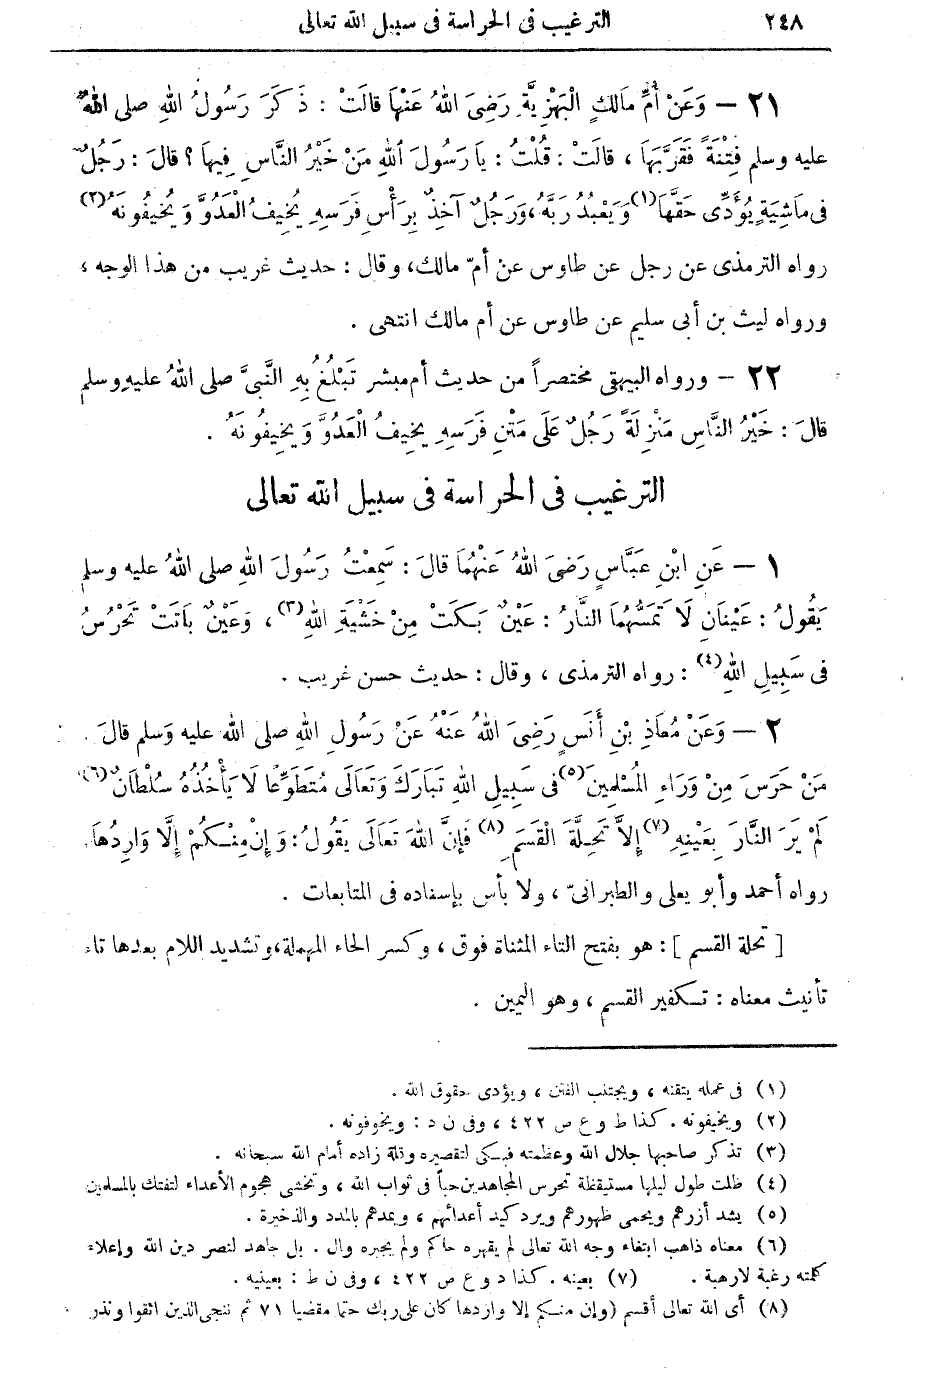 ٢٤٨ الترغيب فى الحراسة فى سبيل الله تعالى
٢١ – وَعَنْ أُمِّ مَالِكٍ الْبَهْزِيَّةِ رَضِىَ اللهُ عَنْهَا قالَتْ : ذَكَرَ رَسُولُ اللهِ صلى اللهُ
عليه وسلم فِتْنَةً فَقَرَّبَهَا ، قالَتْ : قُلْتُ : يَا رَسُولَ اللهِ مَنْ خَيْرُ النَّاسِ فِيهَا ؟ قالَ : رَجُلٌ
فى مَاشِيَةٍ يُؤَدِّى حَقَّهَا (١) وَيَعْبُدُ رَبَّهُ ، وَرَجُلٌ آخِذٌ بِرَأْسِ فَرَسِهِ يُخِيفُ الْعَدُوَّ وَيُخِيفُونَهُ (٢)
رواه الترمذى عن رجل عن طاوس عن أمّ مالك ، وقال : حديث غريب من هذا الوجه ،
ورواه ليث بن أبى سليم عن طاوس عن أم مالك انتهى .
٢٢ – ورواه البيهقى مختصراً من حديث أم مبشر تَبْلُغُ بِهِ النَّبىَّ صلى اللهُ عليه وسلم
قالَ : خَيْرُ النَّاسِ مَنْزِلَةً رَجُلٌ عَلَى مَتْنِ فَرَسِهِ يخِيفُ الْعَدُوَّ وَيخِيفُونَهُ .
الترغيب فى الحراسة فى سبيل الله تعالى
١ – عَنِ ابْنِ عَبَّاسٍ رَضِىَ اللهُ عَنْهُمَا قالَ : سَمِعْتُ رَسُولَ اللهِ صلى اللهُ عليه وسلم
يَقُولُ : عَيْنَانِ لَا تَمَسُّهُمَا النَّارُ : عَيْنٌ بَكَتْ مِنْ خَشْيَةِ اللهِ (٣) ، وَعَيْنٌ بَاتَتْ تَحْرُسُ
فى سَبِيلِ اللهِ (٤) : رواه الترمذى ، وقال : حديث حسن غريب .
٢ – وَعَنْ مُعَاذِ بْنِ أَنَسٍ رَضِىَ اللهُ عَنْهُ عَنْ رَسُولِ اللهِ صلى الله عليه وَسلم قالَ .
مَنْ حَرَسَ مِنْ وَرَاءِ الْمُسْلِمِينَ (٥) فى سَبِيلِ اللهِ تَبَارَكَ وَتَعَالَى مُتَطَوِّعًا لَا يَأْخُذُهُ سُلْطَانٌ (٦)
لَمْ يَرَ النَّارَ بِعَيْنِهِ (٧) إِلاَّ تَحِلَّةَ الْقَسَمِ (٨) فَإِنَّ اللهَ تَعَالَى يَقُولُ : وَإِنْ مِنْكُمْ إِلَّا وَارِدُهَا .
رواه أحمد وأبو يعلى والطبرانىّ ، ولا بأس بإسناده فى المتابعات .
[ تحلة القسم ] : هو بفتح التاء المثناة فوق ، وكسر الحاء المهملة ، وتشديد اللام بعدها تاء
تأنيث معناه : تكفير القسم ، وهو اليمين .
(١) فى عمله يتقنه ، ويجتنب الفتن ، ويؤدى حقوق الله .
(٢) ويخيفونه . كذا ط و ع ص ٤٢٢ ، وفى ن د : ويخوفونه .
(٣) تذكر صاحبها جلال الله وعظمته فبكى لتقصيره وقلة زاده أمام الله سبحانه .
(٤) ظلت طول ليلها مستيقظة تحرس المجاهدين حباً فى ثواب الله ، وتخشى هجوم الأعداء لتفتك بالمسلمين
(٥) يشد أزرهم ويحمى ظهورهم ويرد كيد أعدائهم ، ويمدهم بالمدد والذخيرة .
(٦) معناه ذاهب ابتغاء وجه الله تعالى لم يقهره حاكم ولم يجبره وال . بل جاهد لنصر دين الله وإعلاء
كلمته رغبة لا رهبة . (٧) بعينه . كذا د و ع ص ٤٢٢ ، وفى ن ط : بعينيه .
(٨) أى الله تعالى أقسم (وإن منكم إلا واردها كان على ربك حتما مقضيا ٧١ ثم ننجى الذين اتقوا ونذر